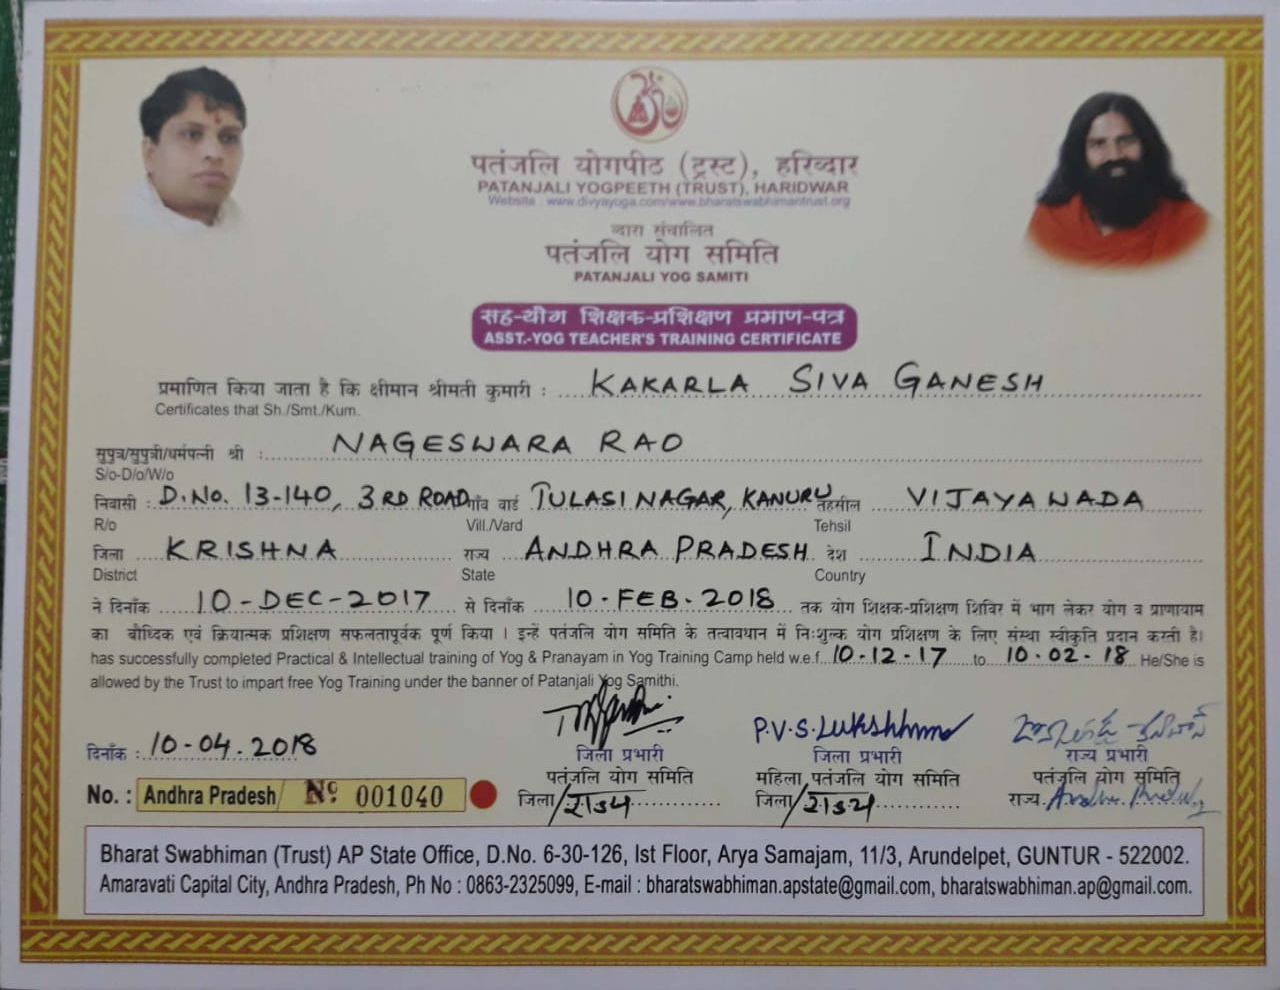 पतंजलि योगपीठ (ट्रस्ट), हरिव्दार
PATANJALI YOGPEETH (TRUST), HARIDWAR
Website : www.divyayoga.com/www.bharatswabhimantrust.org
व्दारा संचालित
पतंजलि योग समिति
PATANJALI YOG SAMITI
सह-योग शिक्षक-प्रशिक्षण प्रमाण-पत्र
ASST.-YOG TEACHER'S TRAINING CERTIFICATE
प्रमाणित किया जाता है कि क्षीमान श्रीमती कुमारी : KAKARLA SIVA GANESH
Certificates that Sh./Smt./Kum.
सुपुत्र/सुपुत्री/धर्मपत्नी श्री : NAGESWARA RAO
S/o-D/o/W/o
निवासी : D.No. 13-140, 3RD ROAD गाँव वार्ड TULASI NAGAR, KANURU तहसील VIJAYAWADA
R/o Vill./Vard Tehsil
जिला KRISHNA राज्य ANDHRA PRADESH देश INDIA
District State Country
ने दिनाँक 10-DEC-2017 से दिनाँक 10-FEB-2018 तक योग शिक्षक-प्रशिक्षण शिविर में भाग लेकर योग व प्राणायाम
का बौध्दिक एवं क्रियात्मक प्रशिक्षण सफलतापूर्वक पूर्ण किया । इन्हें पतंजलि योग समिति के तत्वावधान में निःशुल्क योग प्रशिक्षण के लिए संस्था स्वीकृति प्रदान करती है।
has successfully completed Practical & Intellectual training of Yog & Pranayam in Yog Training Camp held w.e.f. 10-12-17 to 10-02-18 He/She is
allowed by the Trust to impart free Yog Training under the banner of Patanjali Yog Samithi.
P.V.S. Lukshhmi
दिनाँक : 10-04-2018 जिला प्रभारी जिला प्रभारी राज्य प्रभारी
पतंजलि योग समिति महिला पतंजलि योग समिति पतंजलि योग समिति
जिला/राज्य जिला/राज्य राज्य. Andhra Pradesh
No. : Andhra Pradesh/ Nº 001040
Bharat Swabhiman (Trust) AP State Office, D.No. 6-30-126, Ist Floor, Arya Samajam, 11/3, Arundelpet, GUNTUR - 522002.
Amaravati Capital City, Andhra Pradesh, Ph No : 0863-2325099, E-mail : bharatswabhiman.apstate@gmail.com, bharatswabhiman.ap@gmail.com.